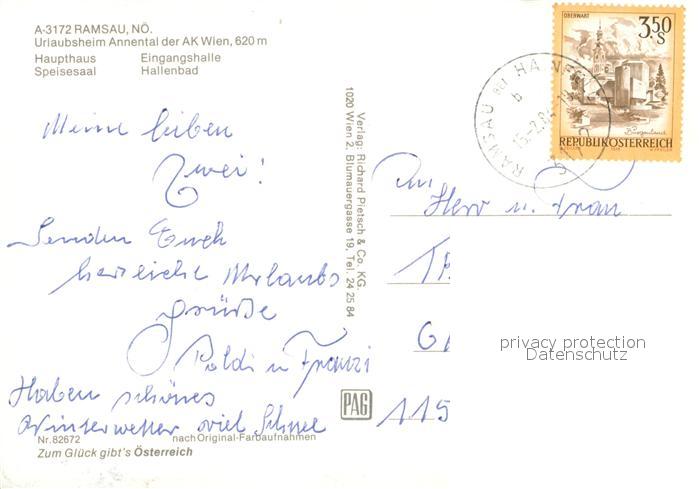 A-3172 RAMSAU, NÖ.
Urlaubsheim Annental der AK Wien, 620 m
Haupthaus Eingangshalle
Speisesaal Hallenbad
Meine lieben
Zwei!
Senden Euch
herzliche Urlaubs
grüße
Poldi u Franzi
Haben schönes
Winterwetter viel Schnee
Nr. 82672 nach Original-Farbaufnahmen
Zum Glück gibt's Österreich
Verlag: Richard Pietsch & Co. KG.
1020 Wien 2, Blumauergasse 19, Tel. 24 25 84
PAG
OBERWART
3.50
S
Burgenland
REPUBLIK ÖSTERREICH
RAMSAU BEI HAINF
b
15.-2.8
An
Herr u. Frau
115
privacy protection
Datenschutz